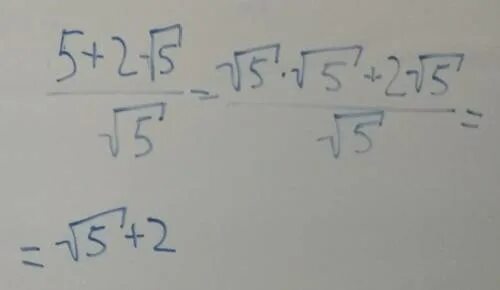 (5+2√5)/√5 = (√5·√5+2√5)/√5 =
= √5+2